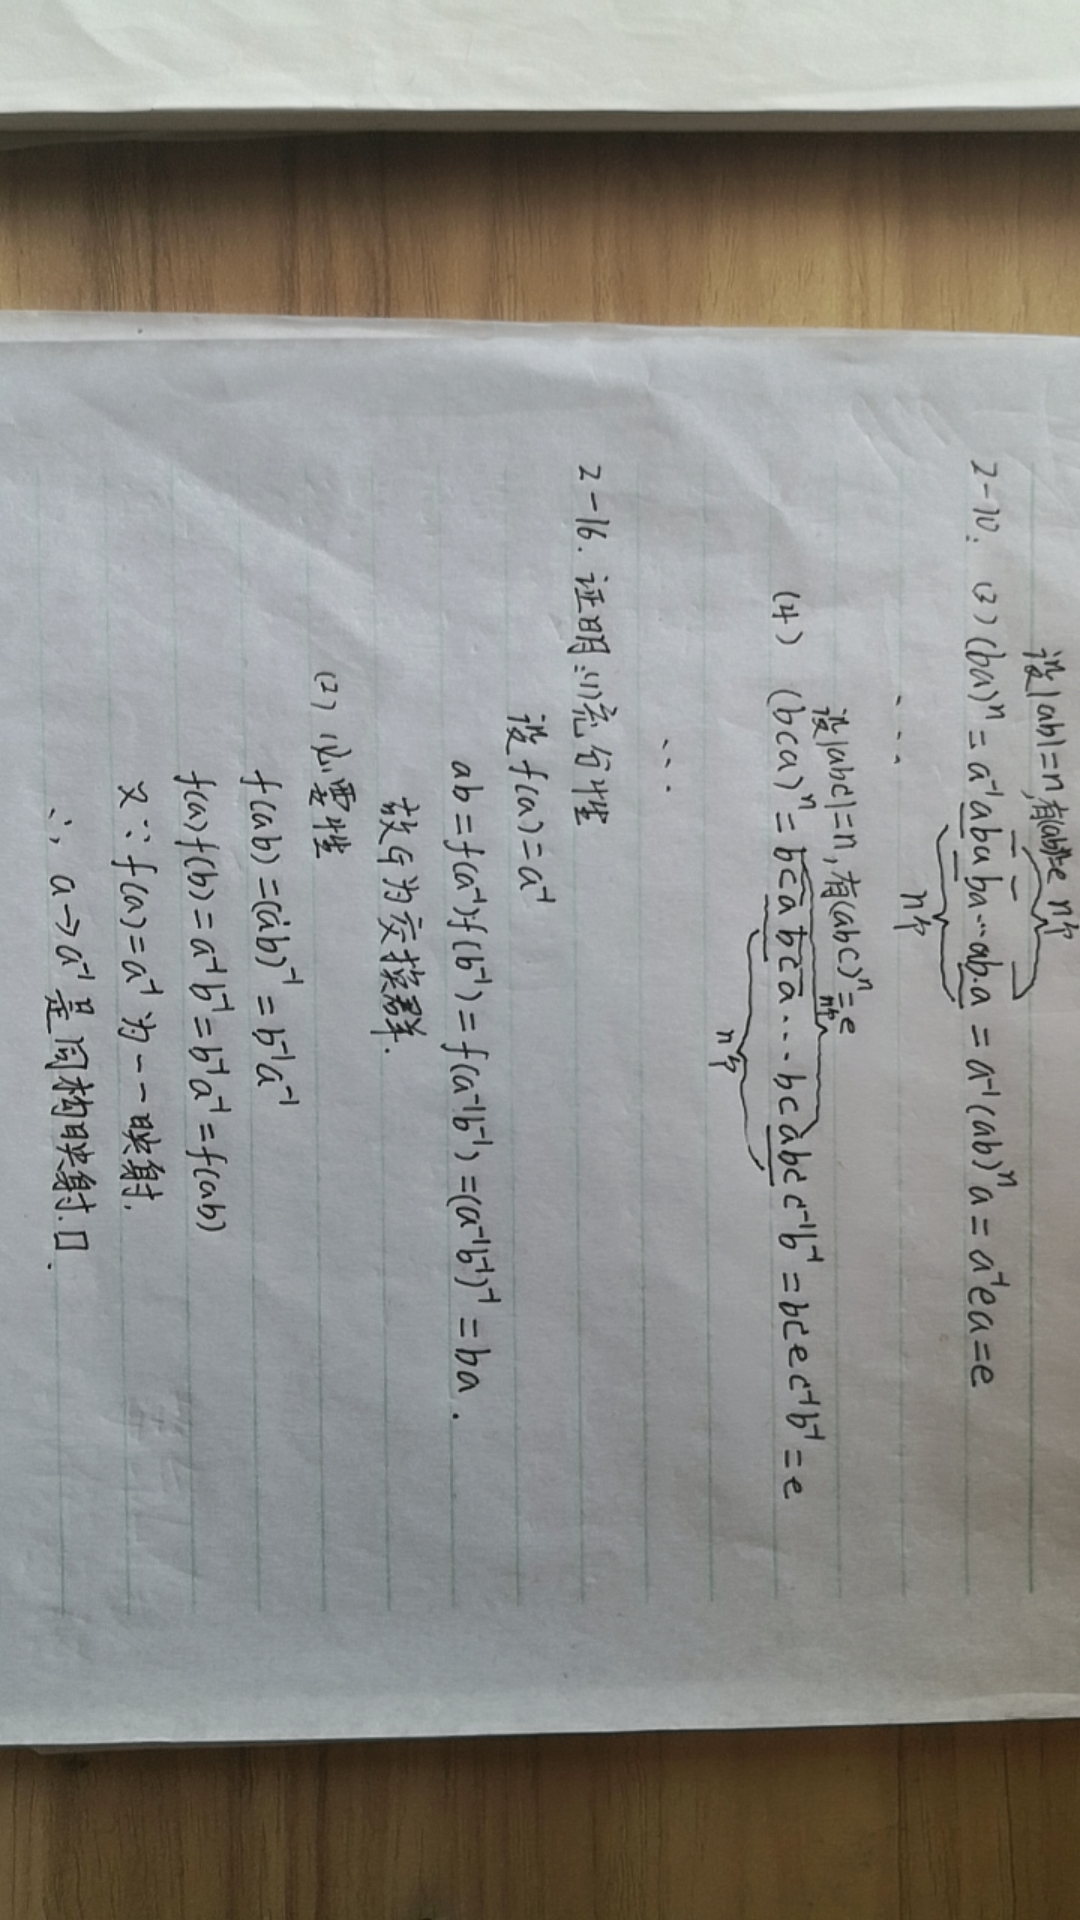 设|ab|=n,有(ab)ⁿ=e n个
2-10. (3) (ba)ⁿ = a⁻¹ababa…ab·a = a⁻¹(ab)ⁿa = a⁻¹ea = e
n个
...
设|abc|=n,有(abc)ⁿ=e
n个
(4) (bca)ⁿ = bcabca...bcabcc⁻¹b⁻¹ = bcec⁻¹b⁻¹ = e
n个
...
2-16. 证明:(1)充分性
设f(a)=a⁻¹
ab=f(a⁻¹)f(b⁻¹)=f(a⁻¹b⁻¹)=(a⁻¹b⁻¹)⁻¹=ba.
故G为交换群.
(2) 必要性
f(ab)=(ab)⁻¹=b⁻¹a⁻¹
f(a)f(b)=a⁻¹b⁻¹=b⁻¹a⁻¹=f(ab)
又∵f(a)=a⁻¹为一一映射.
∴ a→a⁻¹是同构映射.□.